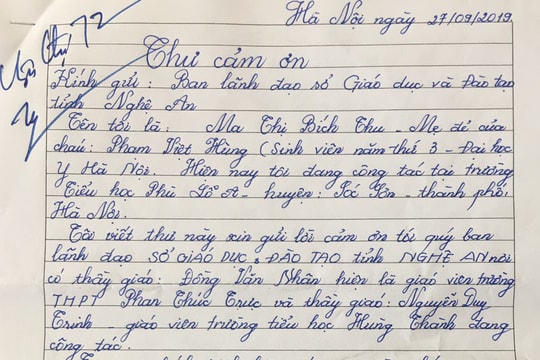 Hà Nội ngày 27/09/2019
Thư cảm ơn
Kính gửi: Ban lãnh đạo sở Giáo dục và Đào tạo
tỉnh Nghệ An
Tên tôi là: Ma Thị Bích Thu - Mẹ đẻ của
cháu: Phạm Việt Hùng (Sinh viên năm thứ 3 - Đại học
Y Hà Nội. Hiện nay tôi đang công tác tại trường
Tiểu học Phù Lỗ A - huyện: Sóc Sơn - thành phố:
Hà Nội.
Tôi viết thư này xin gửi lời cảm ơn tới quý ban
lãnh đạo SỞ GIÁO DỤC & ĐÀO TẠO tỉnh NGHỆ AN nơi
có thầy giáo: Đồng Văn Nhân hiện là giáo viên trường
THPT Phan Thúc Trực và thầy giáo: Nguyễn Duy
Trinh - giáo viên trường tiểu học Hưng Thành đang
công tác.